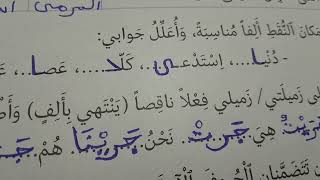 مَكانَ ٱلنُّقَطِ أَلِفاً مُناسِبَةً، وَأُعَلِّلُ جَوابي:
- دُنْيـا، اِسْتَدْعـى، كَلّا، عَصـا، عَـ
زَميلَتي/ زَميلي فِعْلاً ناقِصاً (يَنْتَهي بِأَلِفٍ) وَأَطْـ
هِيَ جَرَتْ. نَحْنُ جَرَيْنا. هُمْ
تَتَضَمَّنانِ ٱلْحُروفَ